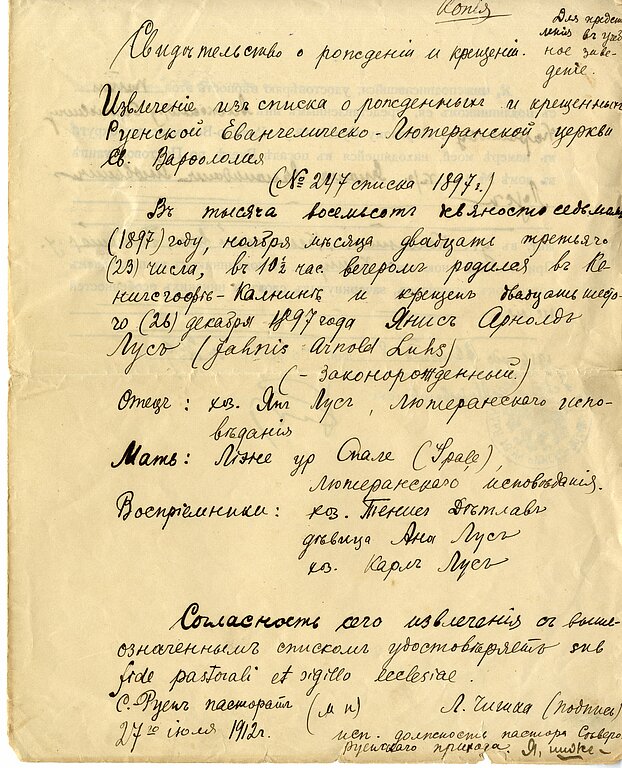 Копія
Для предст
лнія въ учеб
ное заве-
деніе.
Свидѣтельство о рожденіи и крещеніи.
Извлеченіе изъ списка о рожденныхъ и крещенныхъ
Руенской Евангелическо-Лютеранской церкви
св. Варѳоломея
(№ 247 списка 1897 г.)
Въ тысяча восемьсотъ девяносто седьмомъ
(1897) году, ноября мѣсяца двадцать третьяго
(23) числа, въ 10½ час. вечеромъ родился въ Ке-
нигсгофѣ-Калнинѣ и крещенъ двадцать шесто-
го (26) декабря 1897 года Янисъ Арнолдъ
Лусъ (Jahnis Arnold Luhs)
(- Законорожденный.)
Отецъ: хоз. Янъ Лусъ, лютеранскаго испо-
вѣданія
Мать: Лізже ур Спале (Spale),
лютеранскаго исповѣданія.
Воспріемники: хоз. Тенисъ Дѣтлавъ
дѣвица Ана Лусъ
хоз. Карлъ Лусъ
Согласность сего извлеченія съ выше-
означеннымъ спискомъ удостовѣряетъ sub
fide pastorali et sigillo ecclesiae.
С.-Руен. пасторатъ (м п) Л. Чишка (подпись)
27го іюля 1912 г. исп. должность пастора Сѣверо
Руенскаго прихода.